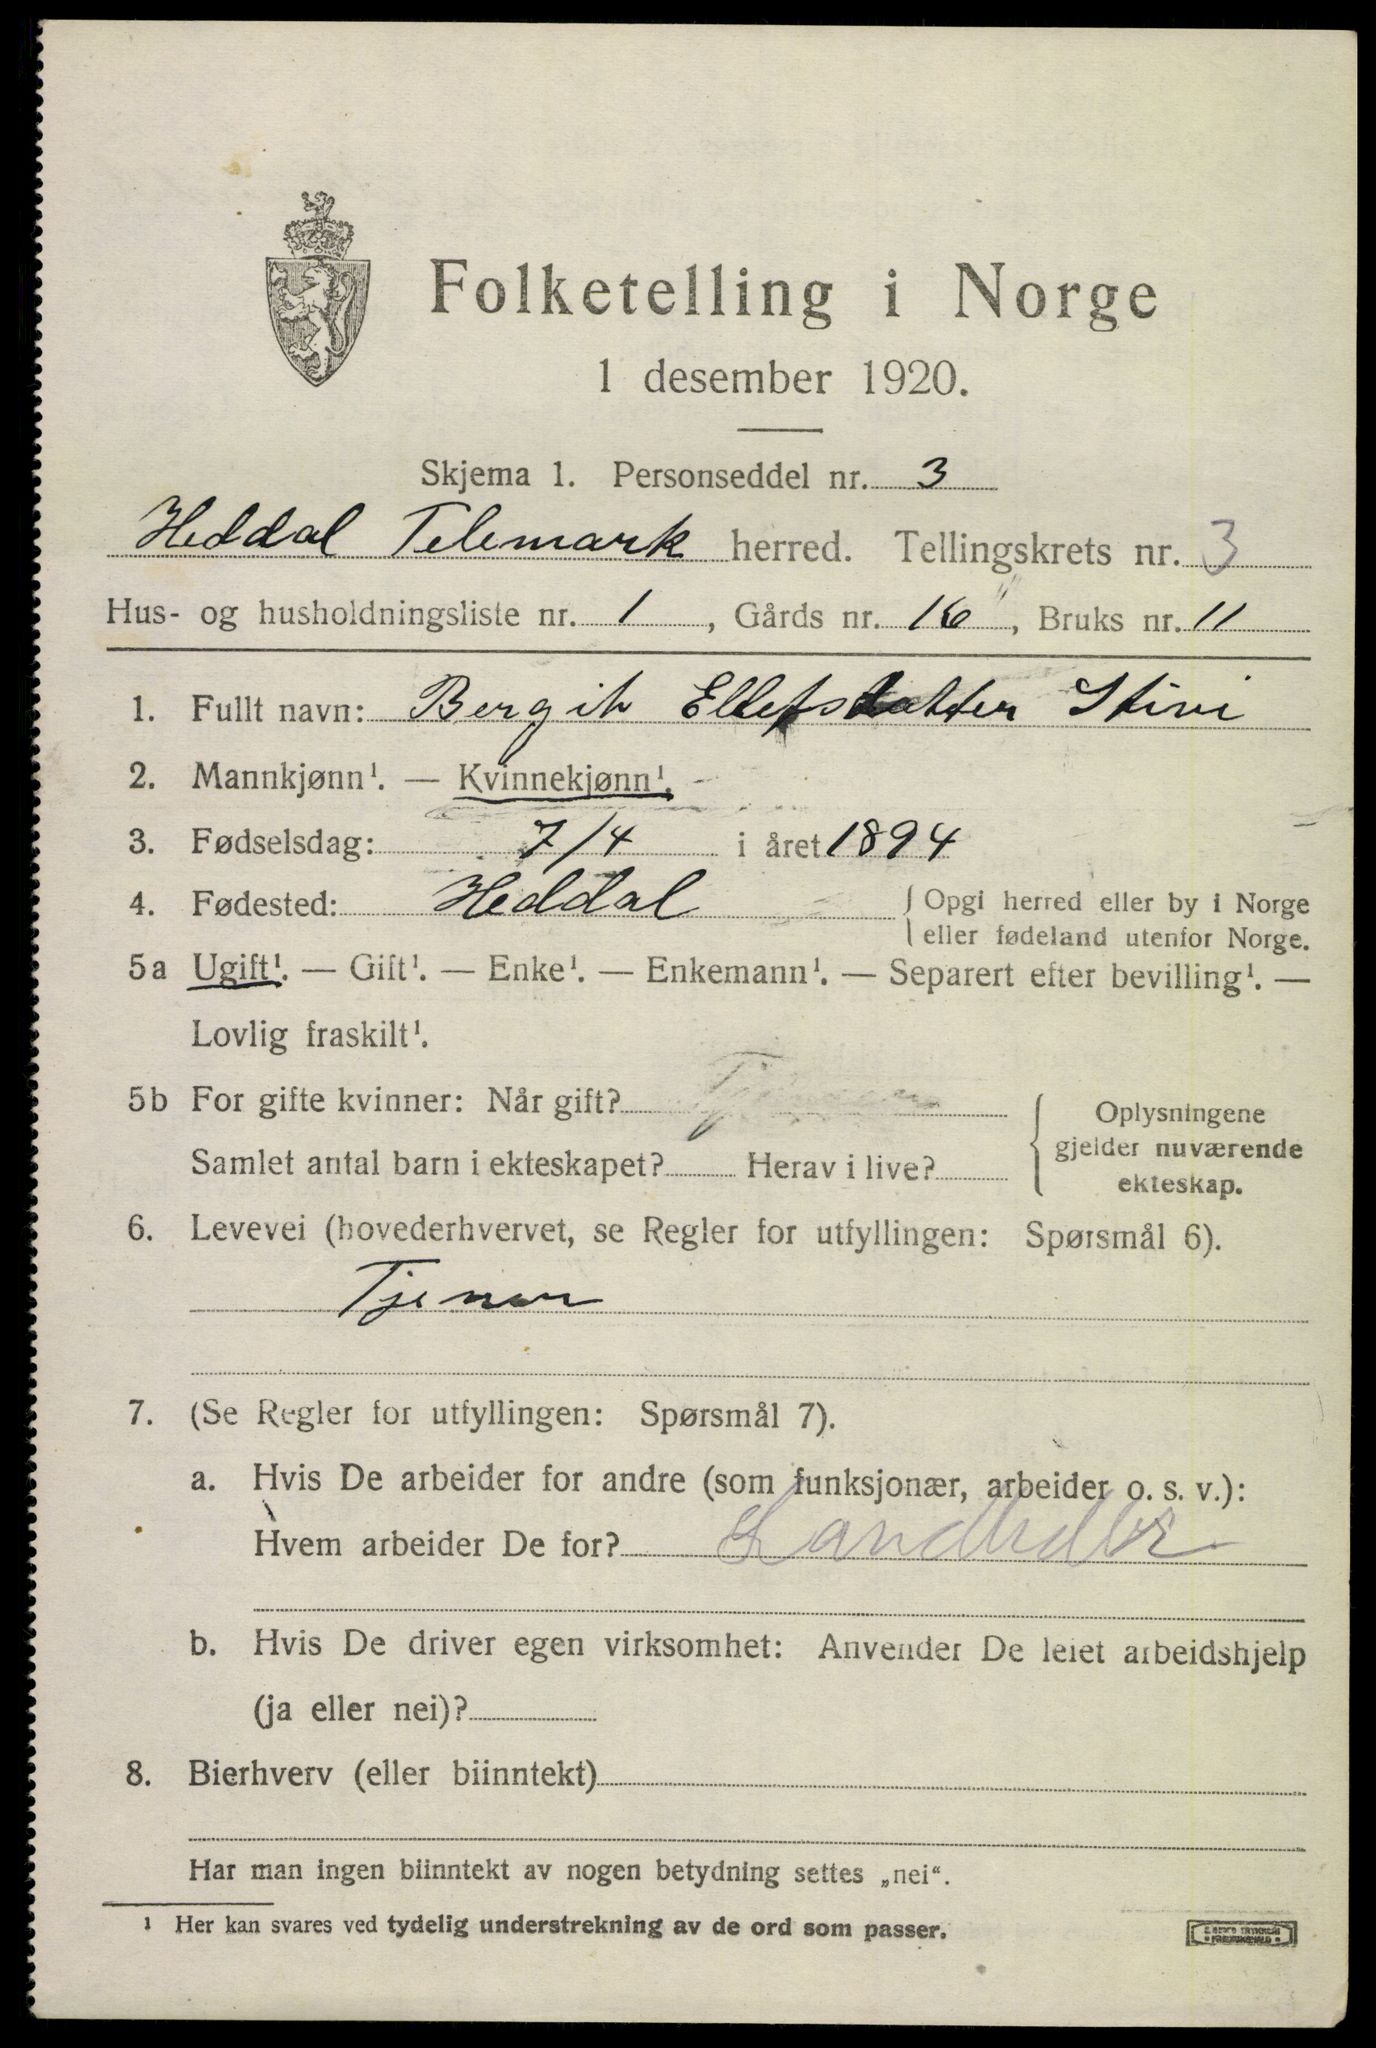 Folketelling i Norge
1 desember 1920.
Skjema 1. Personseddel nr. 3
Heddal Telemark herred. Tellingskrets nr. 3
Hus- og husholdningsliste nr. 1, Gårds nr. 16, Bruks nr. 11
1. Fullt navn: Bergit Ellefsdatter
2. Mannkjønn¹. — Kvinnekjønn¹.
3. Fødselsdag: 7/4 i året 1894
4. Fødested: Heddal { Opgi herred eller by i Norge
eller fødeland utenfor Norge.
5a Ugift¹. — Gift¹. — Enke¹. — Enkemann¹. — Separert efter bevilling¹. —
Lovlig fraskilt¹.
5b For gifte kvinner: Når gift?
Samlet antal barn i ekteskapet? Herav i live?
{ Oplysningene
gjelder nuværende
ekteskap.
6. Levevei (hovederhvervet, se Regler for utfyllingen: Spørsmål 6).
Tjener
7. (Se Regler for utfyllingen: Spørsmål 7).
a. Hvis De arbeider for andre (som funksjonær, arbeider o. s. v.):
Hvem arbeider De for?
b. Hvis De driver egen virksomhet: Anvender De leiet arbeidshjelp
(ja eller nei)?
8. Bierhverv (eller biinntekt)
Har man ingen biinntekt av nogen betydning settes „nei".
¹ Her kan svares ved tydelig understrekning av de ord som passer.